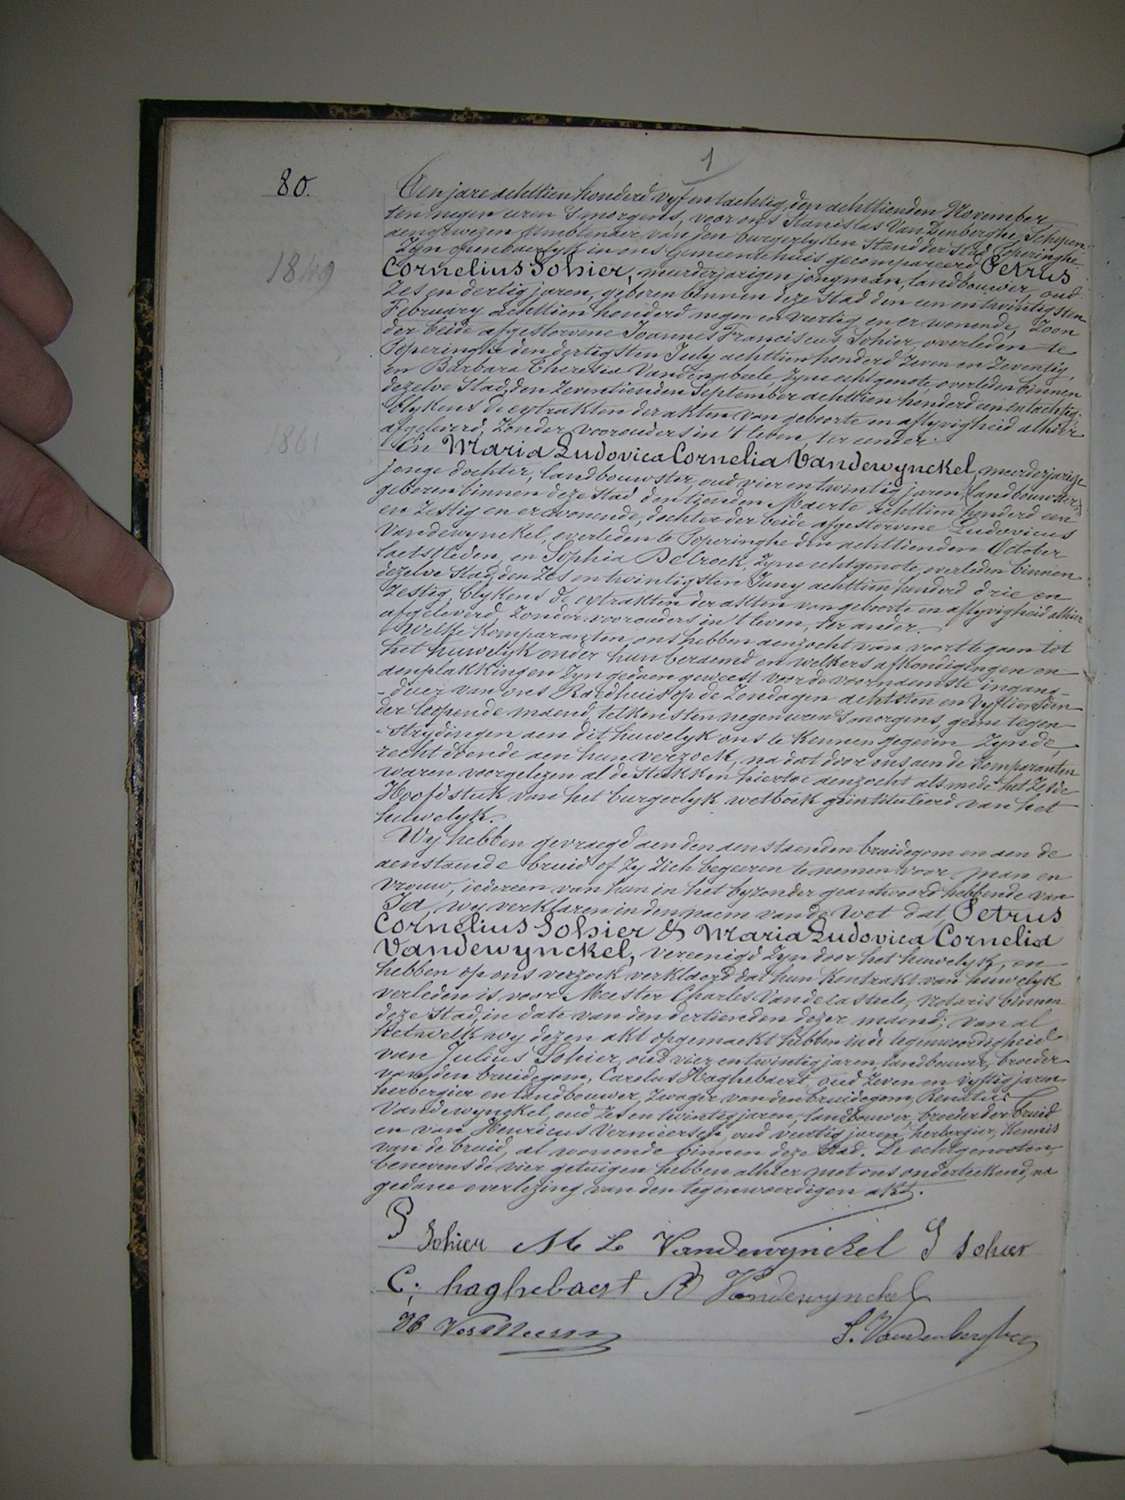 1
80.
Ten jare achttien honderd vyf en tachtig, den achttienden November
ten negen uren 's morgens, voor ons Stanislas Van Denberghe, Schepen
aengewezen Ambtenaer van den burgerlyken stand der stad Poperinghe
Zyn openbaerlyk in ons Gemeentehuis gecompareerd Petrus
1849
Cornelius Sohier, meerderjarigen jongman, landbouwer, oud
Zes en dertig jaren, geboren binnen deze Stad den een en twintigsten
February achttien honderd negen en veertig en er wonende, Zoon
der beide afgestorvene Joannes Franciscus Sohier, overleden te
Poperinghe den dertigsten July achttien honderd Zeven en Zeventig,
en Barbara Theresia Vandenabeele, Zyne echtgenote, overleden binnen
dezelve Stad, den Zeventienden September achttien honderd een en tachtig,
blykens de extrakten der akten van geboorte en aflyvigheid alhier
afgeleverd, Zonder voorouders in 't leven, ter eender.
1861
En Maria Ludovica Cornelia Vandewynckel, meerderjarige
jonge dochter, landbouwster, oud vier en twintig jaren, landbouwster,
geboren binnen deze Stad den tienden Maerte achttien honderd een
en Zestig en er wonende, dochter der beide afgestorvene Ludovicus
Vandewynckel, overleden te Poperinghe den achttienden October
laetstleden, en Sophia Delrock, Zyne echtgenote, overleden binnen
dezelve Stad, den Zes en twintigsten Juny achttien honderd drie en
Zestig, blykens de extrakten der akten van geboorte en aflyvigheid alhier
afgeleverd, Zonder voorouders in 't leven, ter ander.
Welke komparanten ons hebben aenzocht van voort te gaen tot
het huwelyk onder hun beraemd en welkers afkondigingen en
aenplakkingen Zyn gedaen geweest voor de voornaemste ingang-
-deur van ons Raedhuis op de Zondagen achtsten en vyftienden
der loopende maend, telkens ten negen uren 's morgens, geene tegen
-strydingen aen dit huwelyk ons te kennen gegeven Zynde,
recht doende aen hun verzoek, na dat door ons aen de komparanten
waren voorgelezen al de stukken hiertoe aenzocht als mede het Zesde
Hoofdstuk van het burgerlyk wetboek geïntituleerd van het
huwelyk.
Wy hebben gevraegd aen den aenstaenden bruidegom en aen de
aenstaende bruid of Zy Zich begeeren te nemen voor man en
vrouw, iedereen van hun in het byzonder geantwoord hebbende van
Ja, wy verklaren in den naem van de wet dat, Petrus
Cornelius Sohier & Maria Ludovica Cornelia
Vandewynckel, vereenigd Zyn door het huwelyk, en
hebben op ons verzoek verklaerd dat hun kontrakt van huwelyk
verleden is voor Meester Charles Vandecasteele, notaris binnen
deze Stad, in date van den dertienden dezer maend; van al
hetwelk wy dezen akt opgemaekt hebben in de tegenwoordigheid
van Julius Sohier, oud vier en twintig jaren, landbouwer, broeder
van den bruidegom, Carolus Haghebaert, oud Zeven en vyftig jaren
herbergier en landbouwer, Zwager van den bruidegom, Renatus
Vandewynckel, oud Zes en twintig jaren, landbouwer, broeder der bruid
en van Henricus Vermeersch, oud veertig jaren, herbergier, kennis
van de bruid, al wonende binnen deze Stad. De echtgenooten,
benevens de vier getuigen hebben alhier met ons onderteekend, na
gedane overlezing van den tegenwoordigen akt.
P Sohier M L Vandewynckel J Sohier
C. haghebaert R Vandewynckel
H Vermeersch S. Vandenberghe